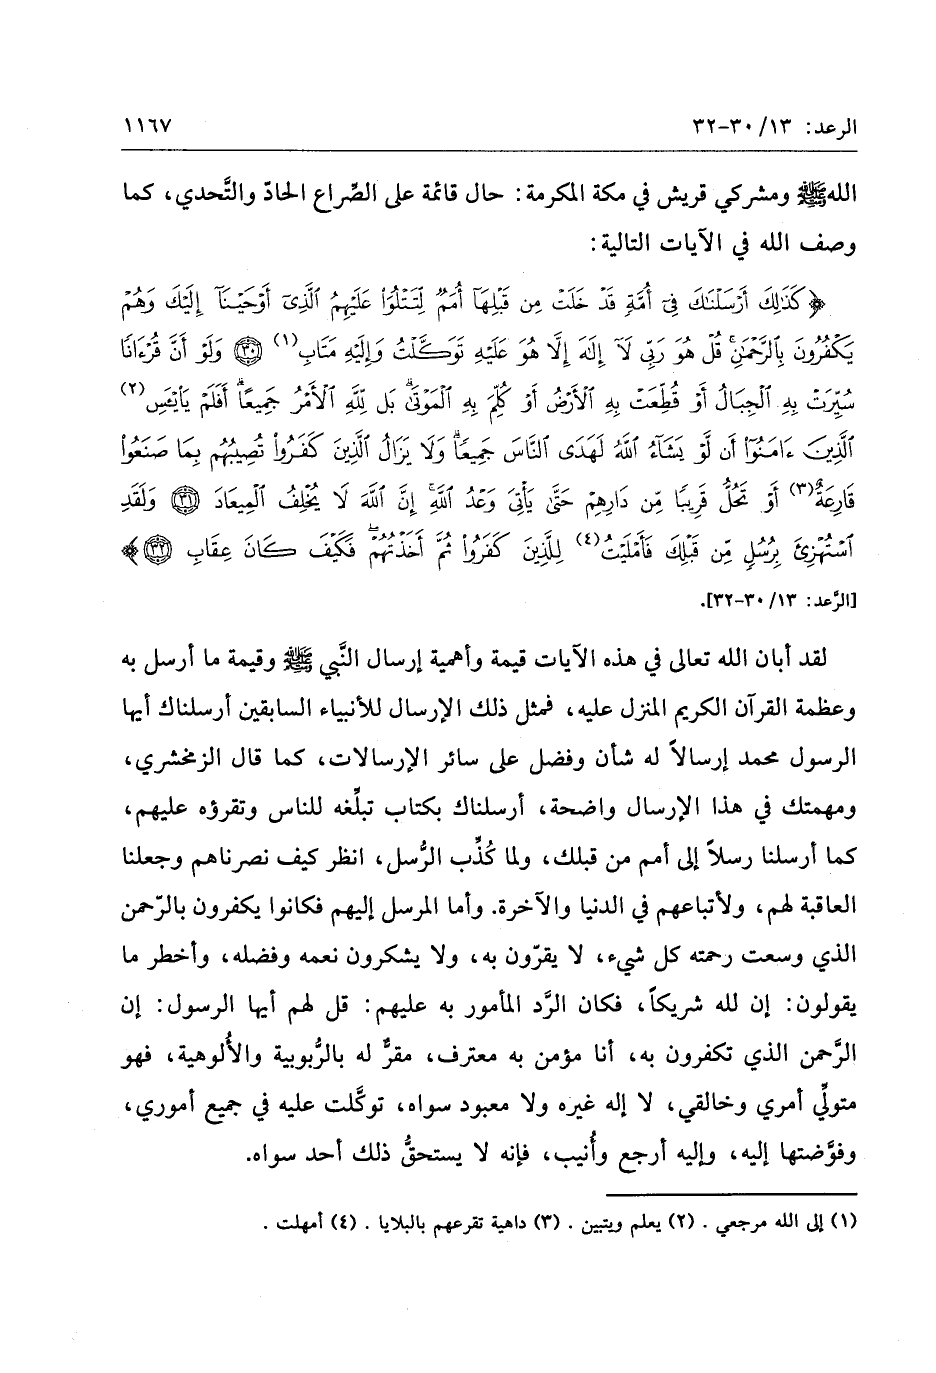 الرعد: ١٣/ ٣٠-٣٢ ١١٦٧
اللهﷺ ومشركي قريش في مكة المكرمة: حال قائمة على الصِّراع الحادّ والتَّحدي، كما
وصف الله في الآيات التالية:
﴿كَذَٰلِكَ أَرۡسَلۡنَٰكَ فِيٓ أُمَّةٖ قَدۡ خَلَتۡ مِن قَبۡلِهَآ أُمَمٞ لِّتَتۡلُوَاْ عَلَيۡهِمُ ٱلَّذِيٓ أَوۡحَيۡنَآ إِلَيۡكَ وَهُمۡ
يَكۡفُرُونَ بِٱلرَّحۡمَٰنِۚ قُلۡ هُوَ رَبِّي لَآ إِلَٰهَ إِلَّا هُوَ عَلَيۡهِ تَوَكَّلۡتُ وَإِلَيۡهِ مَتَابِ(١) ﴿٣٠﴾ وَلَوۡ أَنَّ قُرۡءَانٗا
سُيِّرَتۡ بِهِ ٱلۡجِبَالُ أَوۡ قُطِّعَتۡ بِهِ ٱلۡأَرۡضُ أَوۡ كُلِّمَ بِهِ ٱلۡمَوۡتَىٰۗ بَل لِّلَّهِ ٱلۡأَمۡرُ جَمِيعًاۗ أَفَلَمۡ يَاْيۡـَٔسِ(٢)
ٱلَّذِينَ ءَامَنُوٓاْ أَن لَّوۡ يَشَآءُ ٱللَّهُ لَهَدَى ٱلنَّاسَ جَمِيعٗاۗ وَلَا يَزَالُ ٱلَّذِينَ كَفَرُواْ تُصِيبُهُم بِمَا صَنَعُواْ
قَارِعَةٌ(٣) أَوۡ تَحُلُّ قَرِيبٗا مِّن دَارِهِمۡ حَتَّىٰ يَأۡتِيَ وَعۡدُ ٱللَّهِۚ إِنَّ ٱللَّهَ لَا يُخۡلِفُ ٱلۡمِيعَادَ ﴿٣١﴾ وَلَقَدِ
ٱسۡتُهۡزِئَ بِرُسُلٖ مِّن قَبۡلِكَ فَأَمۡلَيۡتُ(٤) لِلَّذِينَ كَفَرُواْ ثُمَّ أَخَذۡتُهُمۡۖ فَكَيۡفَ كَانَ عِقَابِ ﴿٣٢﴾﴾
[الرَّعد: ١٣/ ٣٠-٣٢].
لقد أبان الله تعالى في هذه الآيات قيمة وأهمية إرسال النَّبي ﷺ وقيمة ما أرسل به
وعظمة القرآن الكريم المنزل عليه، فمثل ذلك الإرسال للأنبياء السابقين أرسلناك أيها
الرسول محمد إرسالاً له شأن وفضل على سائر الإرسالات، كما قال الزمخشري،
ومهمتك في هذا الإرسال واضحة، أرسلناك بكتاب تبلِّغه للناس وتقرؤه عليهم،
كما أرسلنا رسلاً إلى أمم من قبلك، ولما كُذِّب الرُّسل، انظر كيف نصرناهم وجعلنا
العاقبة لهم، ولأتباعهم في الدنيا والآخرة. وأما المرسل إليهم فكانوا يكفرون بالرّحمن
الذي وسعت رحمته كل شيء، لا يقرّون به، ولا يشكرون نعمه وفضله، وأخطر ما
يقولون: إن لله شريكاً، فكان الرَّد المأمور به عليهم: قل لهم أيها الرسول: إن
الرَّحمن الذي تكفرون به، أنا مؤمن به معترف، مقرٌّ له بالرُّبوبية والأُلوهية، فهو
متولِّي أمري وخالقي، لا إله غيره ولا معبود سواه، توكَّلت عليه في جميع أموري،
وفوَّضتها إليه، وإليه أرجع وأُنيب، فإنه لا يستحقُّ ذلك أحد سواه.
(١) إلى الله مرجعي . (٢) يعلم ويتبين . (٣) داهية تقرعهم بالبلايا . (٤) أمهلت .